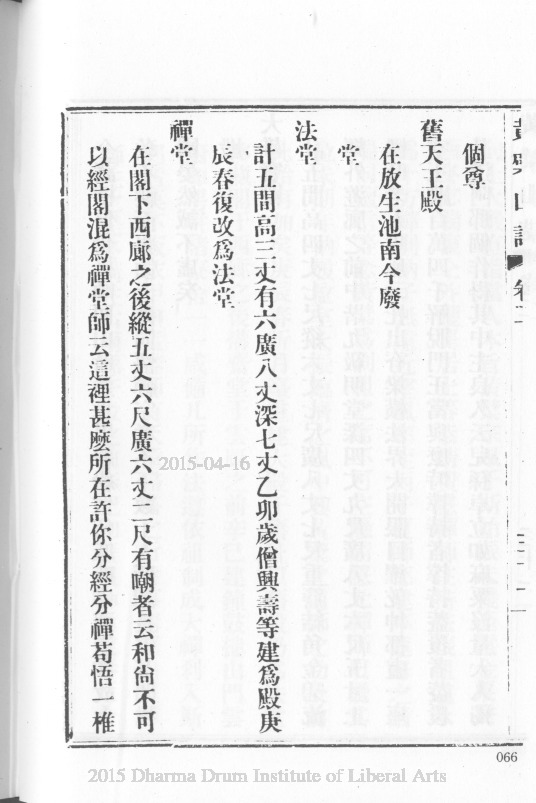 黃檗山誌 卷二
個尊
舊天王殿
在放生池南今廢
堂
法堂
計五間高三丈有六廣八丈深七丈乙卯歲僧興壽等建爲殿庚
辰春復改爲法堂
禪堂
在閣下西廊之後縱五丈六尺廣六丈二尺有嘲者云和尙不可
以經閣混爲禪堂師云這裡甚麽所在許你分經分禪苟悟一椎
066
2015-04-16
2015 Dharma Drum Institute of Liberal Arts